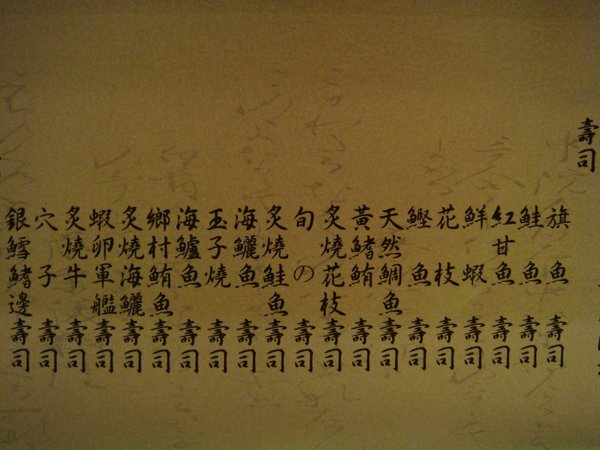 壽司
旗魚壽司
鮭魚壽司
紅甘魚壽司
鮮蝦壽司
花枝壽司
鰹魚壽司
天然鯛魚壽司
黃鰭鮪壽司
炙燒花枝壽司
旬の壽司
炙燒鮭魚壽司
海鱺魚壽司
玉子燒壽司
海鱸魚壽司
鄉村鮪魚壽司
炙燒海鱺壽司
蝦卵軍艦壽司
炙燒牛壽司
穴子壽司
銀鱈鰭邊壽司